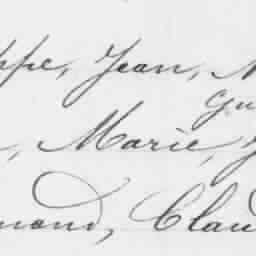 ppe, Jean,
Marie,
mond, Clau